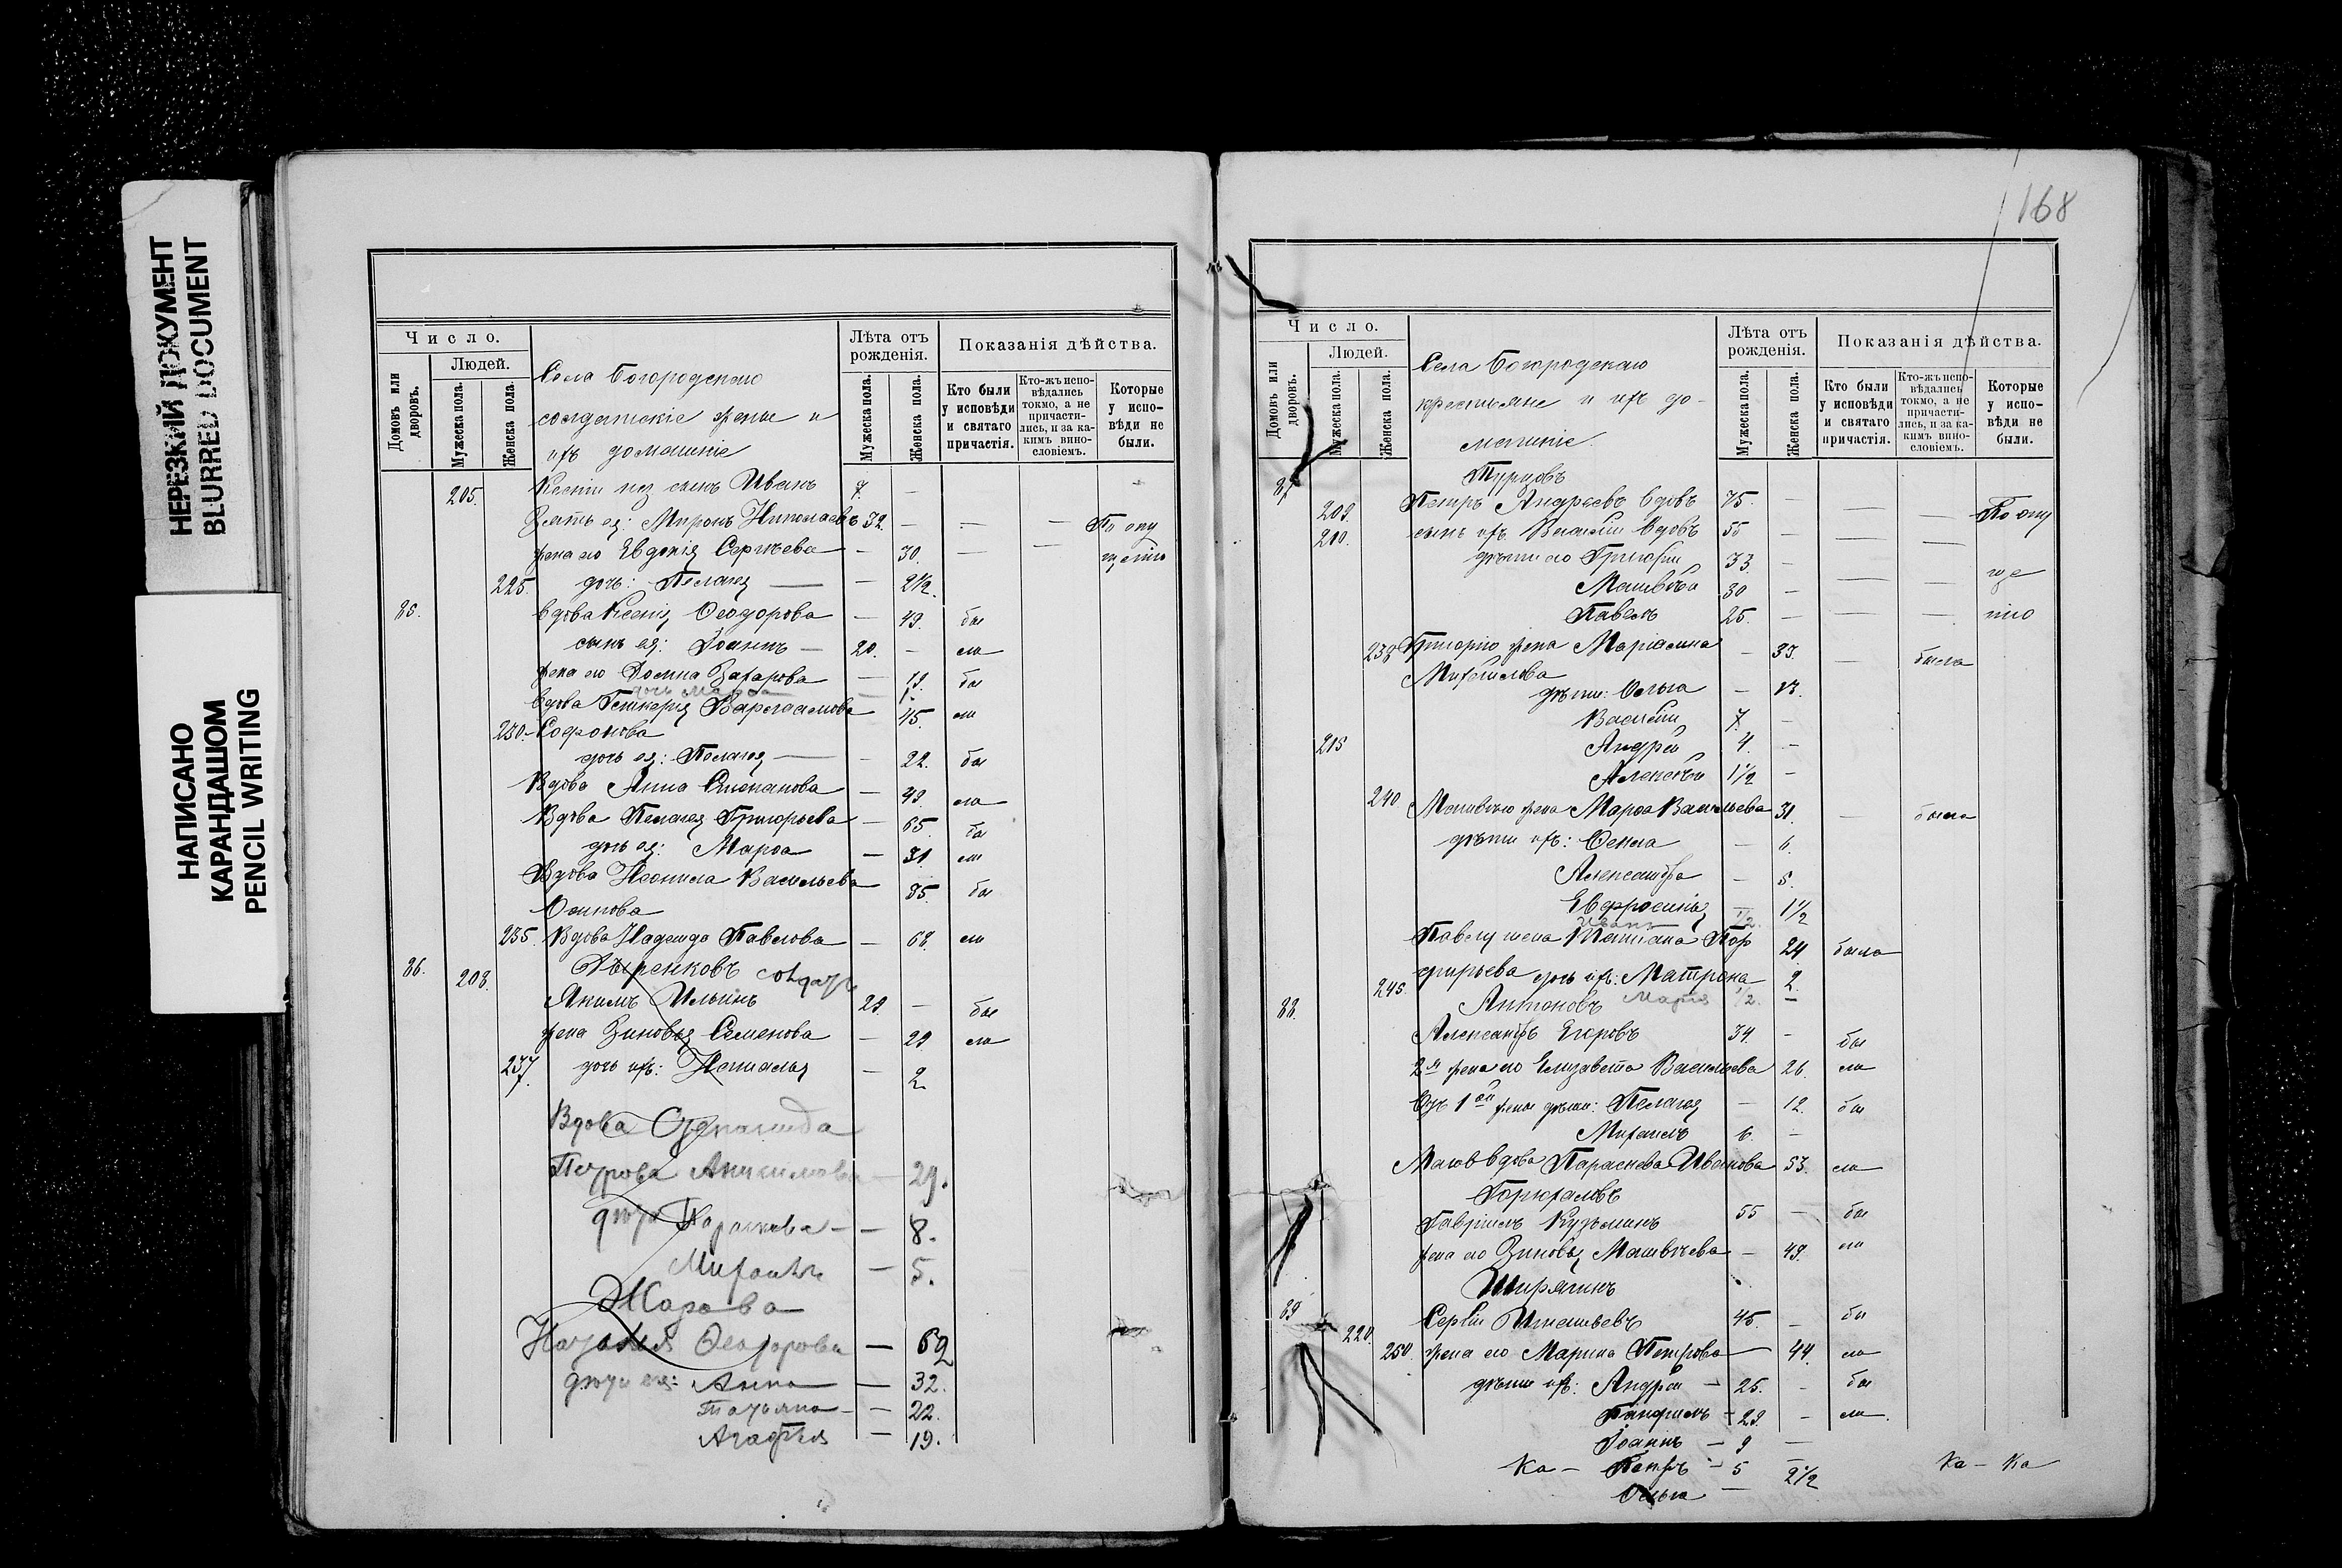 НЕРЕЗКИЙ ДОКУМЕНТ
BLURRED DOCUMENT
НАПИСАНО
КАРАНДАШОМ
PENCIL WRITING
Число.
Людей.
Домовъ или дворовъ.
Мужеска пола.
Женска пола.
Села Богородскаго
солдатскіе жены и
ихъ домашніе
Лѣта отъ рожденія.
Мужеска пола.
Женска пола.
Показанія дѣйства.
Кто были у исповѣди и святаго причастія.
Кто-жъ исповѣдались токмо, а не причастились, и за какимъ винословіемъ.
Которые у исповѣди не были.
205. Ксеніи сынъ Иванъ 7. —
Зять ея: Миронъ Николаевъ 32. — — — По опу
жена его Евдокія Сергѣева — 30. — — щенію
225. дочь: Пелагея — 2 1/2.
85. Вдова Ксенія Ѳеодорова — 49. бы
сынъ ея: Іоаннъ — 20. — ла
жена его Домна Захарова — 19. бы
дочь Марѳа
Вдова Гликерія Варлаамова — 45. ла
230. Софонова
дочь ея: Пелагея — 22. бы
Вдова Анна Степанова — 49. ла
Вдова Пелагея Григорьева — 65. бы
дочь ея: Марѳа — 31. ла
Вдова Неонила Васильева — 85. бы
Осипова
235. Вдова Надежда Павлова — 68. ла
86. 208. Дыренковъ солдатъ
Якимъ Ильинъ 29. — бы
жена Зиновья Семенова — 29 ла
237. дочь ихъ: Наталья — 2.
Вдова
Петрова Анисимова — 29.
дѣти Параскева — — 8.
Михаилъ — 5.
Жарова
Наталья Ѳеодорова — 62
дѣти ея: Анна — 32.
Татьяна — — 22.
Агафья — 19.
168
Число.
Людей.
Домовъ или дворовъ.
Мужеска пола.
Женска пола.
Села Богородскаго
крестьяне и ихъ до-
машніе.
Лѣта отъ рожденія.
Мужеска пола.
Женска пола.
Показанія дѣйства.
Кто были у исповѣди и святаго причастія.
Кто-жъ исповѣдались токмо, а не причастились, и за какимъ винословіемъ.
Которые у исповѣди не были.
87. Турцовъ
209. Петръ Андреевъ вдовъ 75. — — — По опу
210. сынъ ихъ Василій вдовъ 55 — — —
дѣти его Григорій 33. — — — ще
Матвѣй 30 — — —
Павелъ 25. — — — нію
238 Григорію жена Маріамна — 33. — была
Михайлова
дѣти: Ольга — 13.
Василій 7. —
215 Андрей 4. —
Алексѣй 1 1/2 —
240 Матвѣю жена Марѳа Васильева 31. — была
дѣти ихъ: Ѳекла — 6.
Александра — 5.
Евфросинія — 1 1/2
Иванъ 1/2.
Павелу жена Татіана Пор 24 была
245. фирьева дочь ихъ: Матрона 2.
88. Антоновъ Марія 1/2. —
Александръ Егоровъ 34. — бы
2я жена его Елизавета Васильева 26. ла
Отъ 1ой жены дѣти: Пелагея — 12. бы
Михаилъ 6. —
Вдова Параскева Иванова 53. ла
Гавріилъ Кузьминъ 55 — бы
жена его Зиновья Матвѣева — 49. ла
Ширягинъ
89 Сергій Игнатьевъ 45. — бы
220. 250. жена его Марина Петрова — 44. ла
дѣти ихъ: Андрей — 25. — бы
Панфилъ — 23. — ла.
Іоаннъ — 9 —
Ка — Петръ — 5 — Ка — Ка
Ольга — 2 1/2